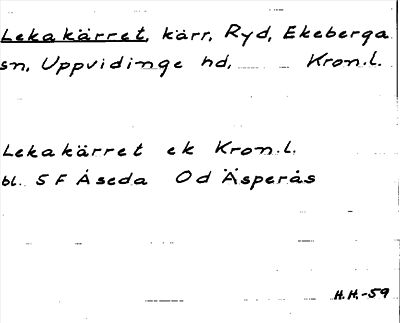 Lekakärret, kärr, Ryd, Ekeberga
sn, Uppvidinge hd, Kron.l.
Lekakärret ek Kron.l.
bl. 5 F Åseda Od Äsperås
H.H.-59